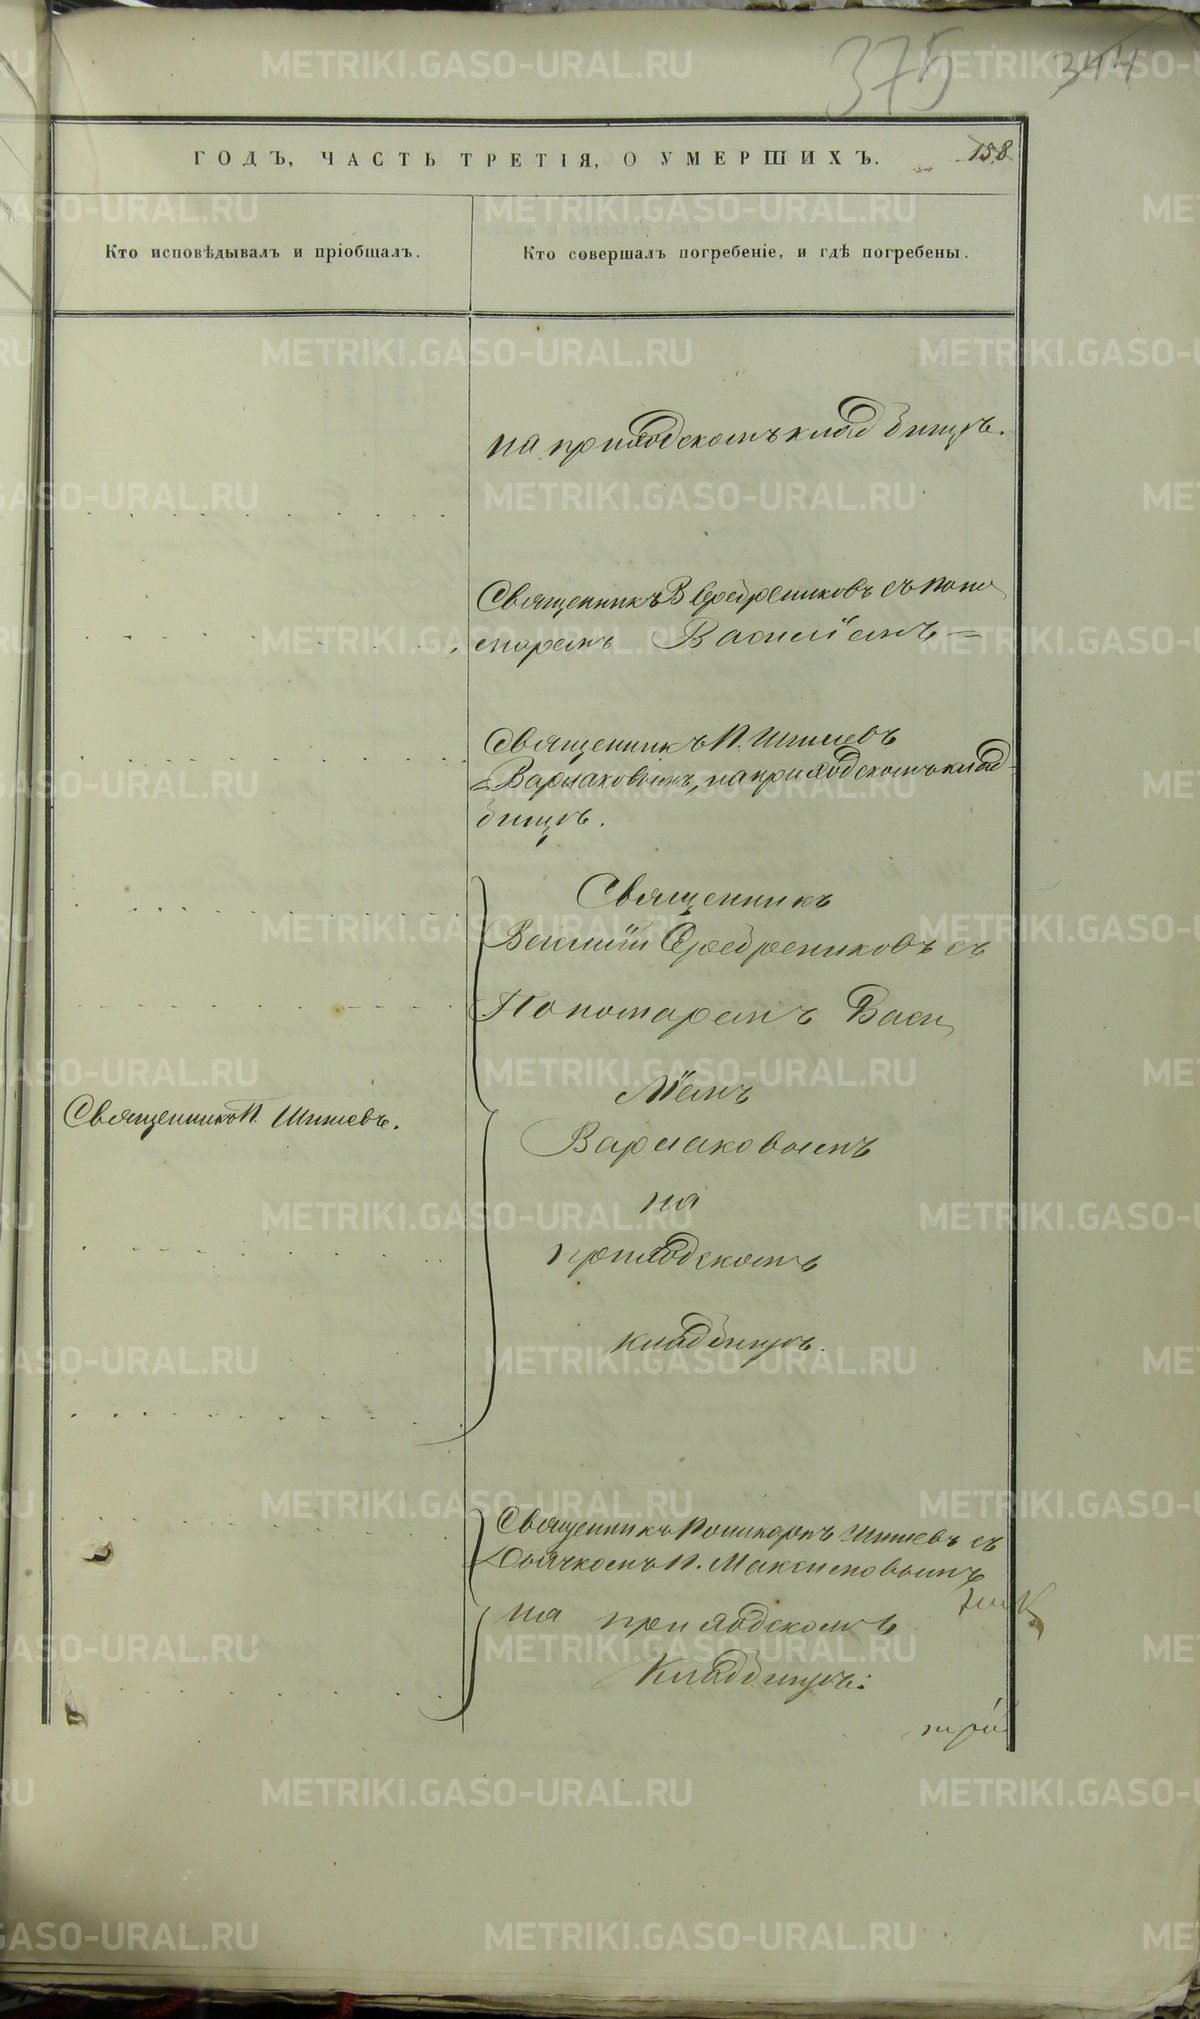 375
344
ГОДЪ, ЧАСТЬ ТРЕТІЯ, О УМЕРШИХЪ.
158
Кто исповѣдывалъ и пріобщалъ.
Кто совершалъ погребеніе, и гдѣ погребены.
на приходскомъ кладбищѣ.
Священникъ В Серебрениковъ съ Поно
маремъ Василіемъ =
Священникъ П. Шишевъ
Варлаковымъ, на приходскомъ клад
бищѣ.
Священникъ
Василій Серебрениковъ съ
Пономаремъ Васи
ліемъ
Священникъ П. Шишевъ.
Варлаковымъ
на
приходскомъ
кладбищѣ.
Священникъ Поликарпъ Шишевъ съ
Дьячкомъ П. Максимовымъ
на приходскомъ
Кладбищѣ:
METRIKI.GASO-URAL.RU